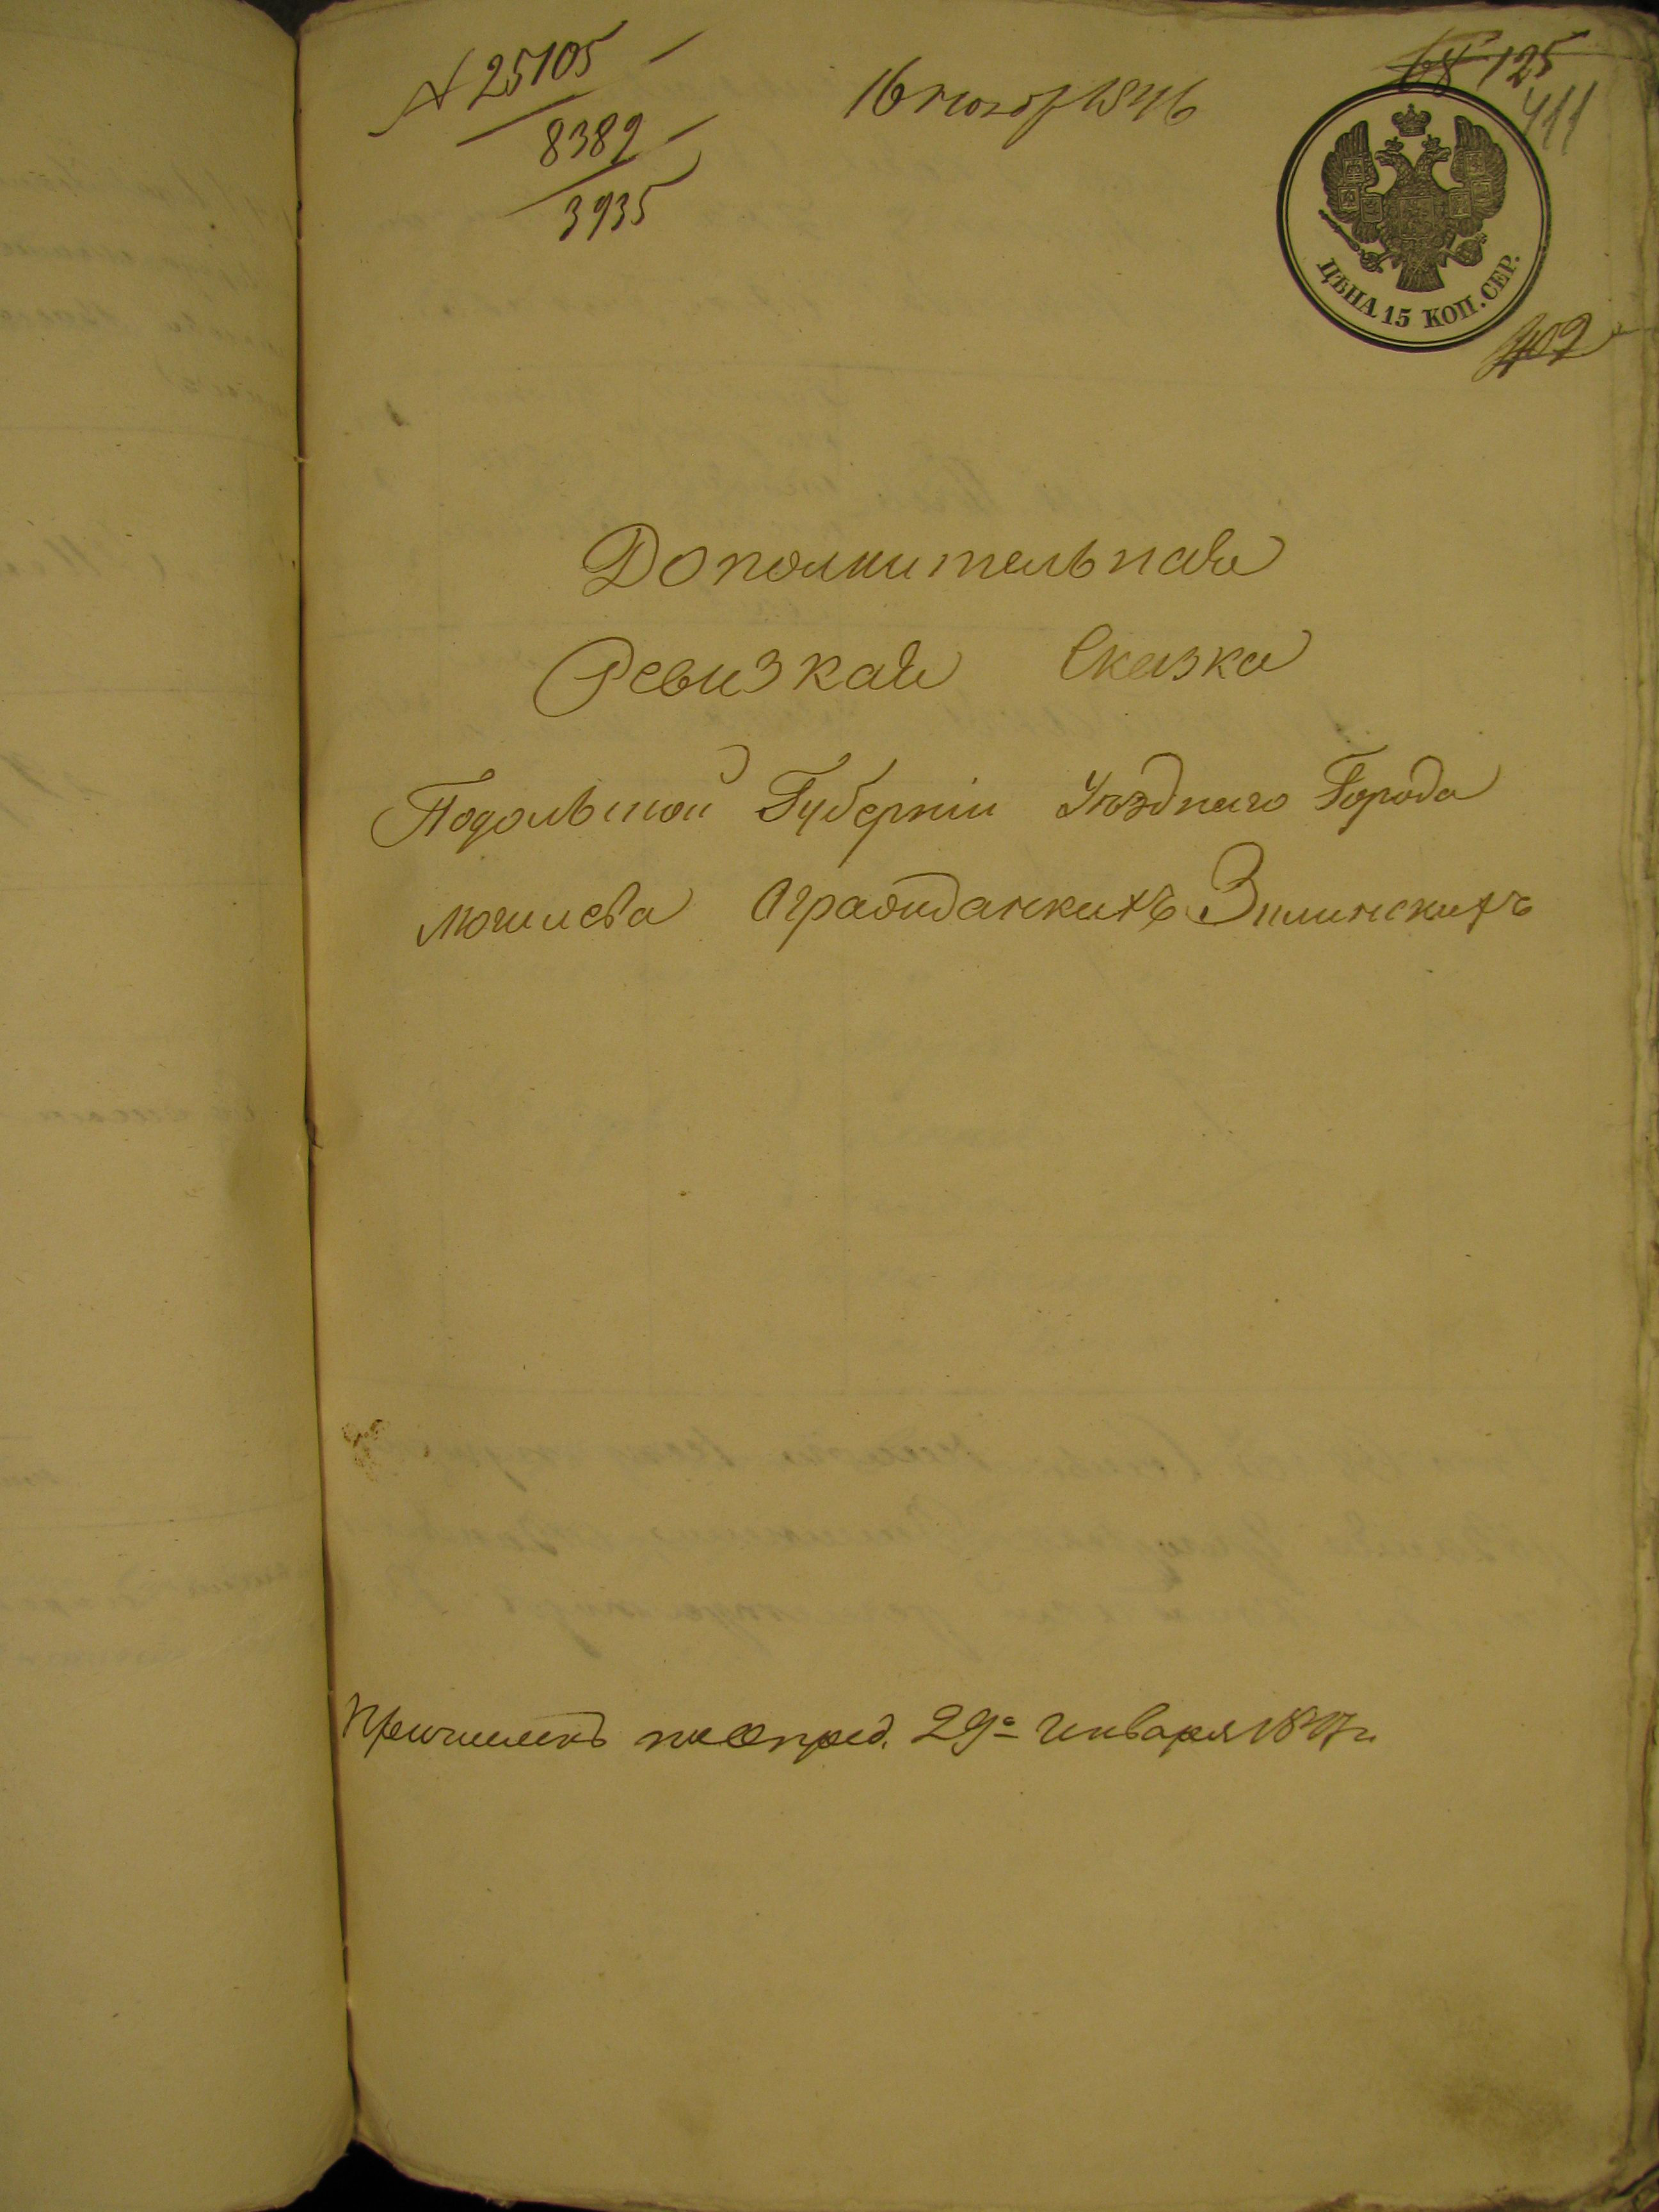 N 25105
8382
3935
16 нояб 1846
68 125
411
ЦѢНА 15 КОП. СЕР.
402
Дополнительная
Ревизкая Сказка
Подольской Губерніи Уѣзднаго Города
Могилева Огражданкихъ Зилинскихъ
Причисленъ по опред. 29го Января 1847 г.